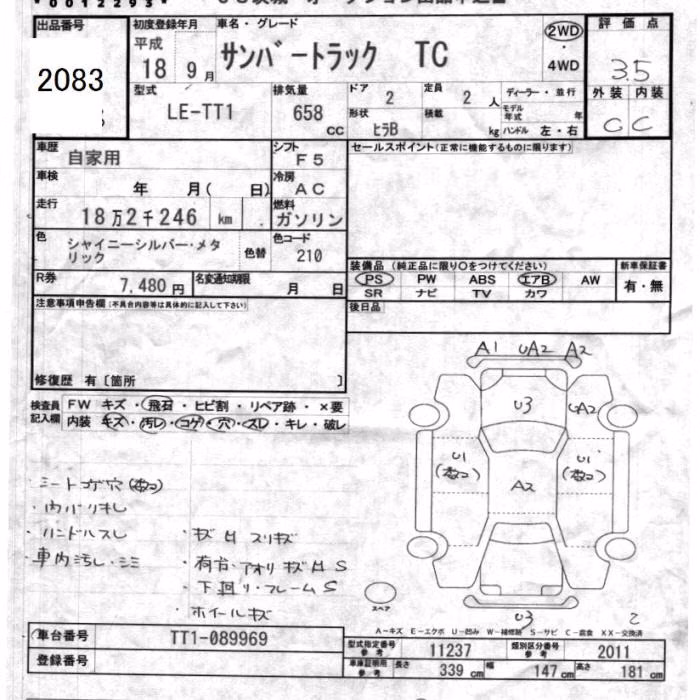 0012293
出品番号
2083
初度登録年月
平成
18 9月
車名・グレード
サンバートラック TC
2WD
・
4WD
評価点
3.5
外装 内装
C C
型式
LE-TT1
排気量
658
CC
ドア
2
定員
2 人
形状
ヒラB
積載
kg
ディーラー・並行
モデル年式 年
ハンドル 左・右
車歴
自家用
シフト
F5
車検
年 月( 日)
冷房
AC
走行
18万2千246 km
燃料
ガソリン
色
シャイニーシルバー・メタリック
色替
色コード
210
R券
7,480円
名変通知期限
月 日
セールスポイント(正常に機能するものに限ります)
装備品 (純正品に限り〇をつけてください)
PS PW ABS エアB AW
SR ナビ TV カワ
新車保証書
有・無
後日品
注意事項申告欄(不具合内容等は具体的に記入して下さい)
修復歴 有〔箇所 〕
検査員記入欄
FW キズ・飛石・ヒビ割・リペア跡・×要
内装 キズ・汚レ・コゲ・穴・スレ・キレ・破レ
・シートコゲ穴(数コ)
・内バリキレ
・ハンドルスレ
・車内汚し・シミ
・キズ凹スリキズ
・荷台・アオリキズ凹S
・下回リ・フレームS
・ホイールキズ
A1 UA2 A2
U3
UA2
U1
(数コ)
U1
(数コ)
A2
U3
2
スペア
A-キズ E-エクボ U-凹み W-補修跡 S-サビ C-腐食 XX-交換済
車台番号
TT1-089969
登録番号
型式指定番号
参考
11237
類別区分番号
参考
2011
車庫証明用
参考
長さ
339 cm
幅
147 cm
高さ
181 cm